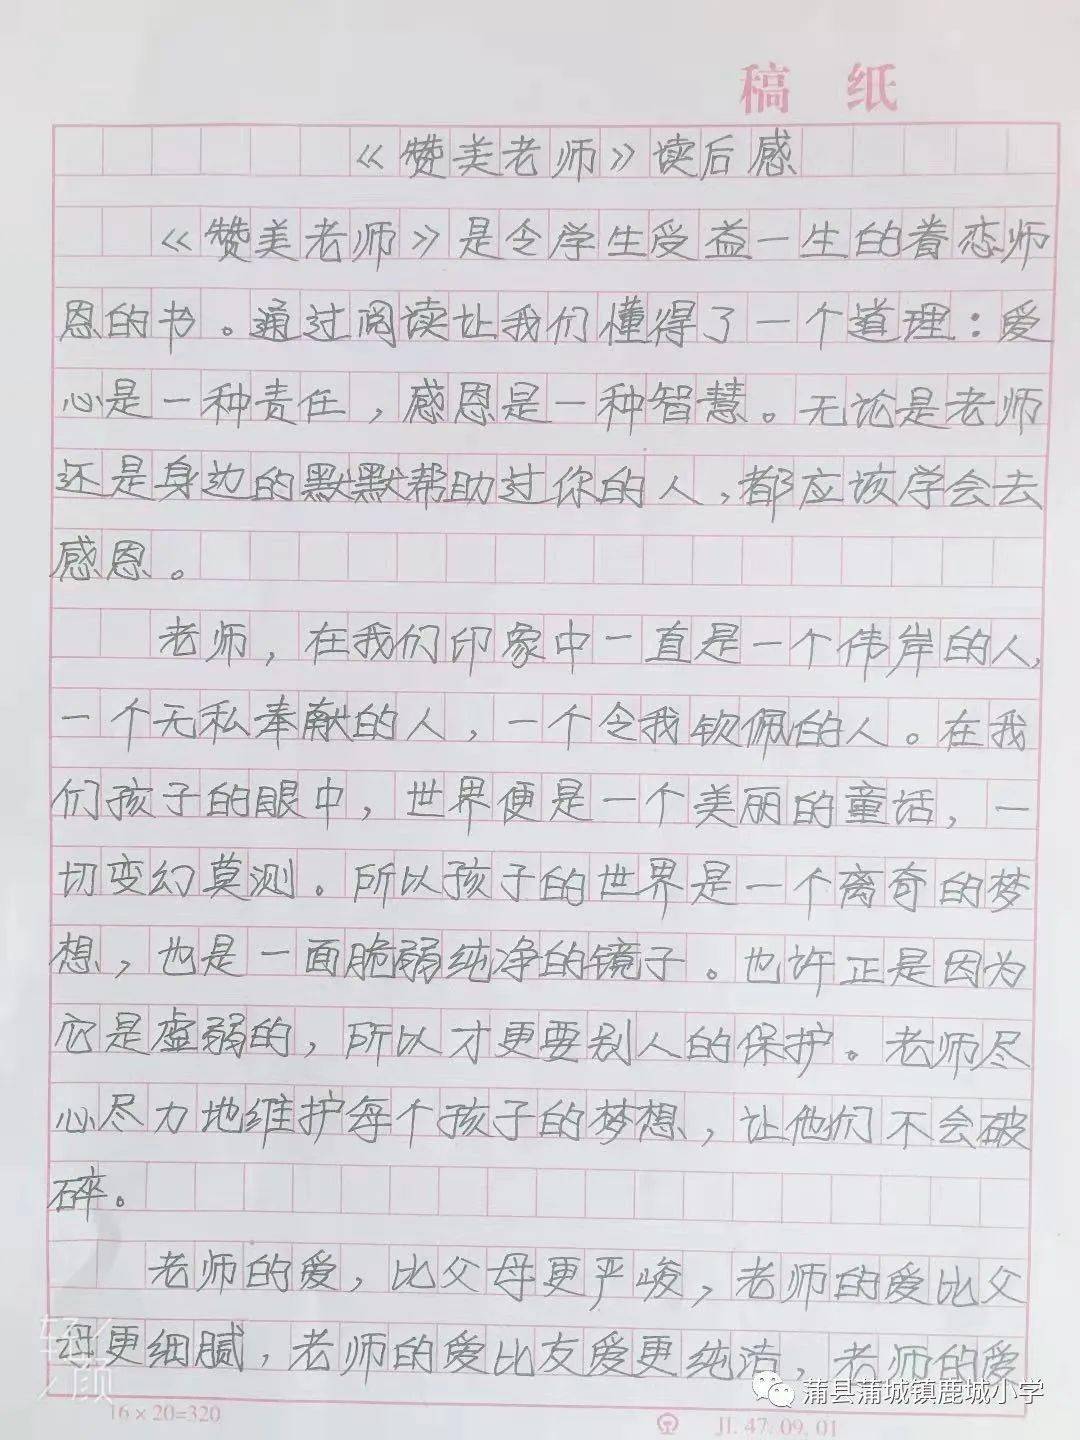 稿 纸
《赞美老师》读后感
《赞美老师》是令学生受益一生的眷恋师
恩的书。通过阅读让我们懂得了一个道理：爱
心是一种责任，感恩是一种智慧。无论是老师
还是身边的默默帮助过你的人，都应该学会去
感恩。
老师，在我们印象中一直是一个伟岸的人，
一个无私奉献的人，一个令我钦佩的人。在我
们孩子的眼中，世界便是一个美丽的童话，一
切变幻莫测。所以孩子的世界是一个离奇的梦
想，也是一面脆弱纯净的镜子。也许正是因为
它是虚弱的，所以才更要别人的保护。老师尽
心尽力地维护每个孩子的梦想，让他们不会破
碎。
老师的爱，比父母更严峻，老师的爱比父
母更细腻，老师的爱比友爱更纯洁，老师的爱
轻颜
蒲县蒲城镇鹿城小学
16×20=320
JI. 47. 09. 01